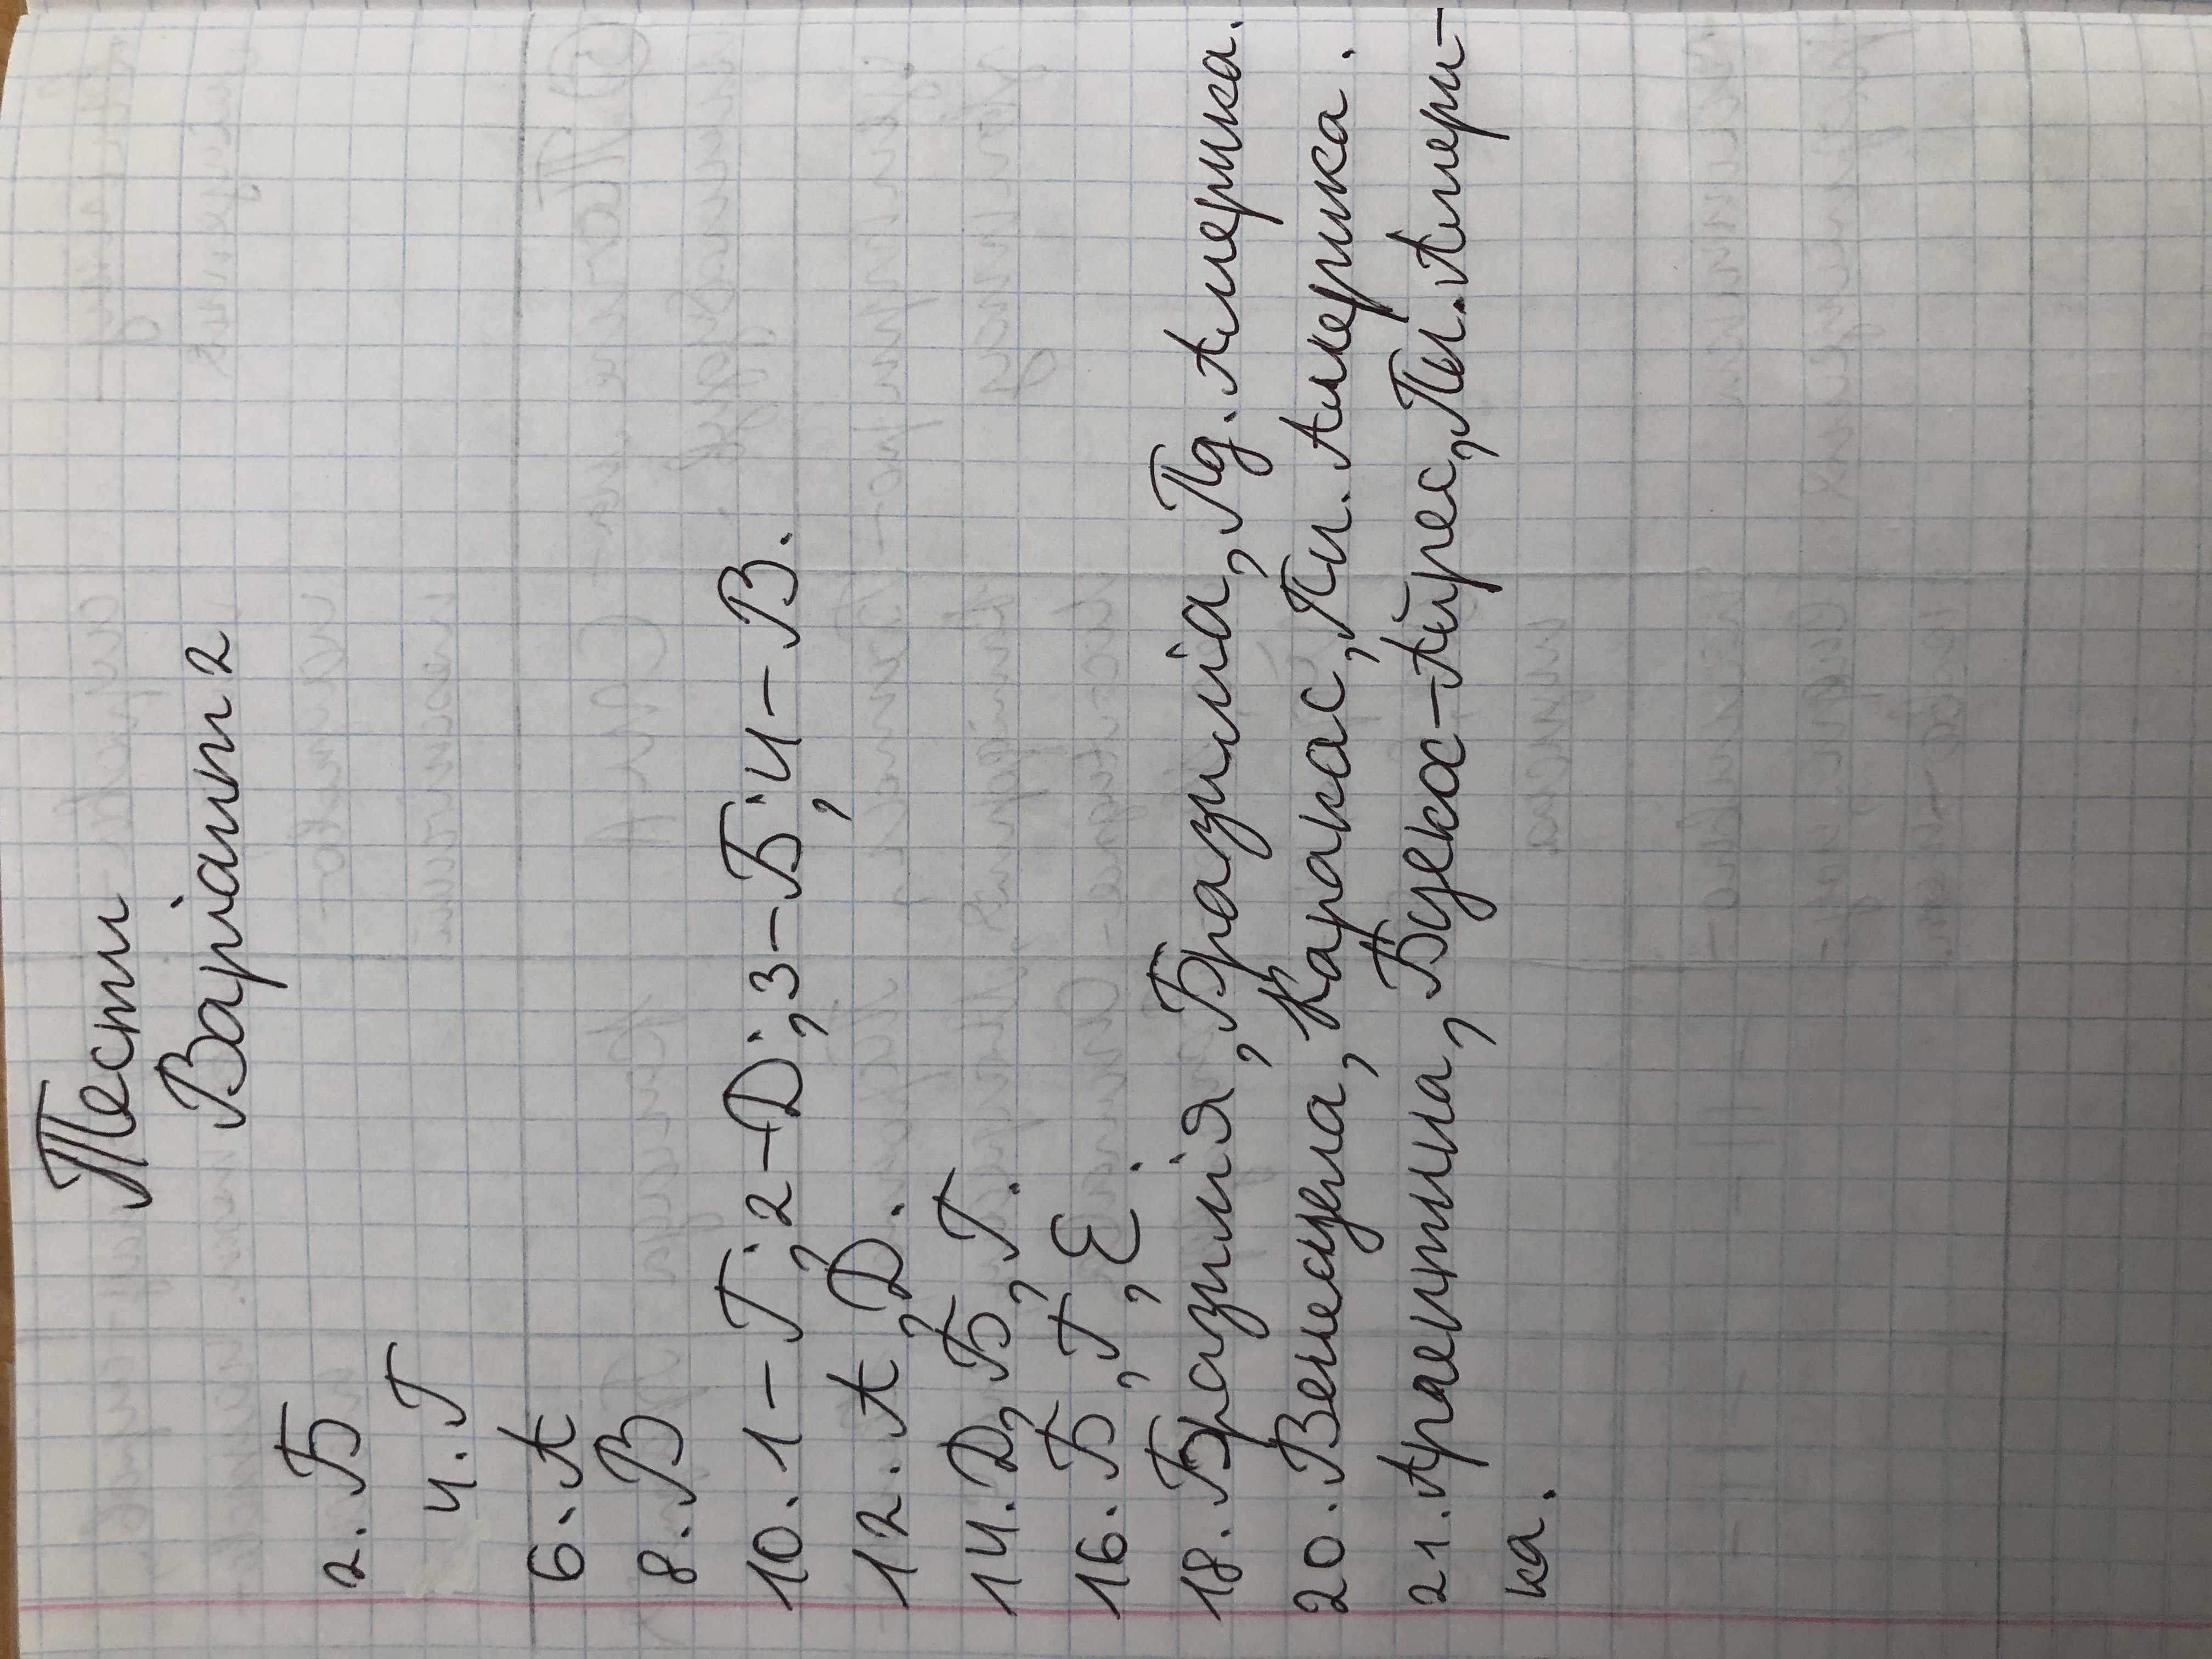 Тести
Варіант 2
2. Б
4. Г
6. А
8. В
10. 1 – Г; 2 – Д; 3 – Б; 4 – В.
12. А, Д.
14. Д, Б, Г.
16. Б, Г, Е.
18. Бразилія, Бразиліа, Пд. Америка.
20. Венесуела, Каракас, Пн. Америка.
21. Аргентина, Буекос-Айрес, Пн. Амери-
ка.